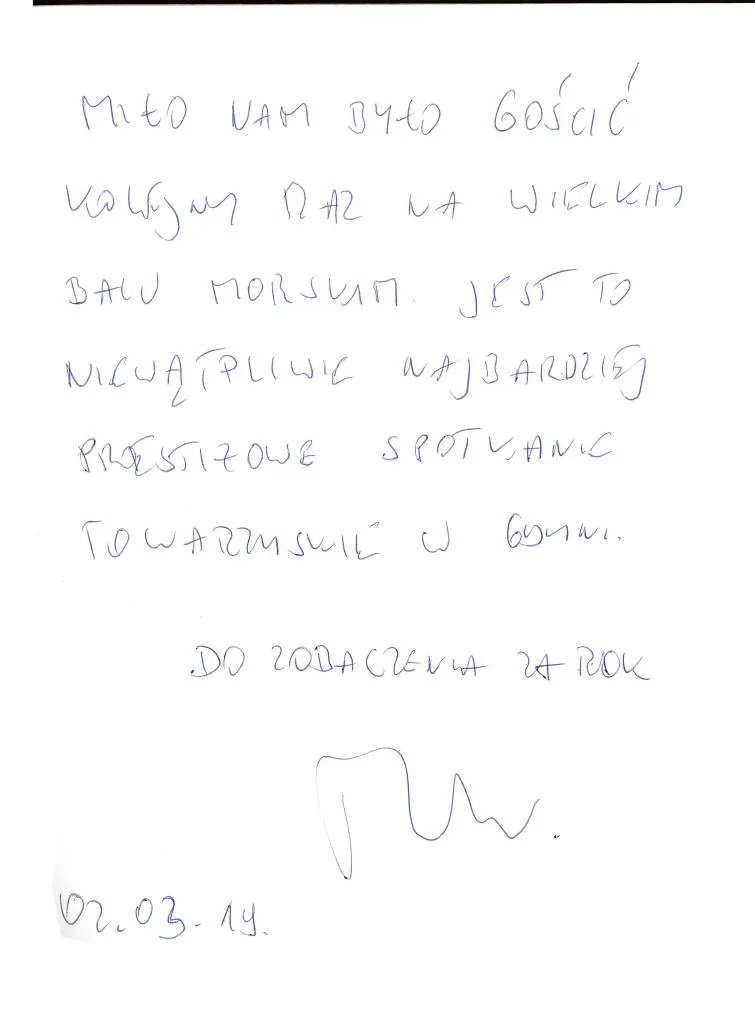 MIŁO NAM BYŁO GOŚCIĆ
KOLEJNY RAZ NA WIELKIM
BALU MORSKIM. JEST TO
NIEWĄTPLIWIE NAJBARDZIEJ
PRESTIŻOWE SPOTKANIE
TOWARZYSKIE W GDYNI.
DO ZOBACZENIA ZA ROK
02.03.19.